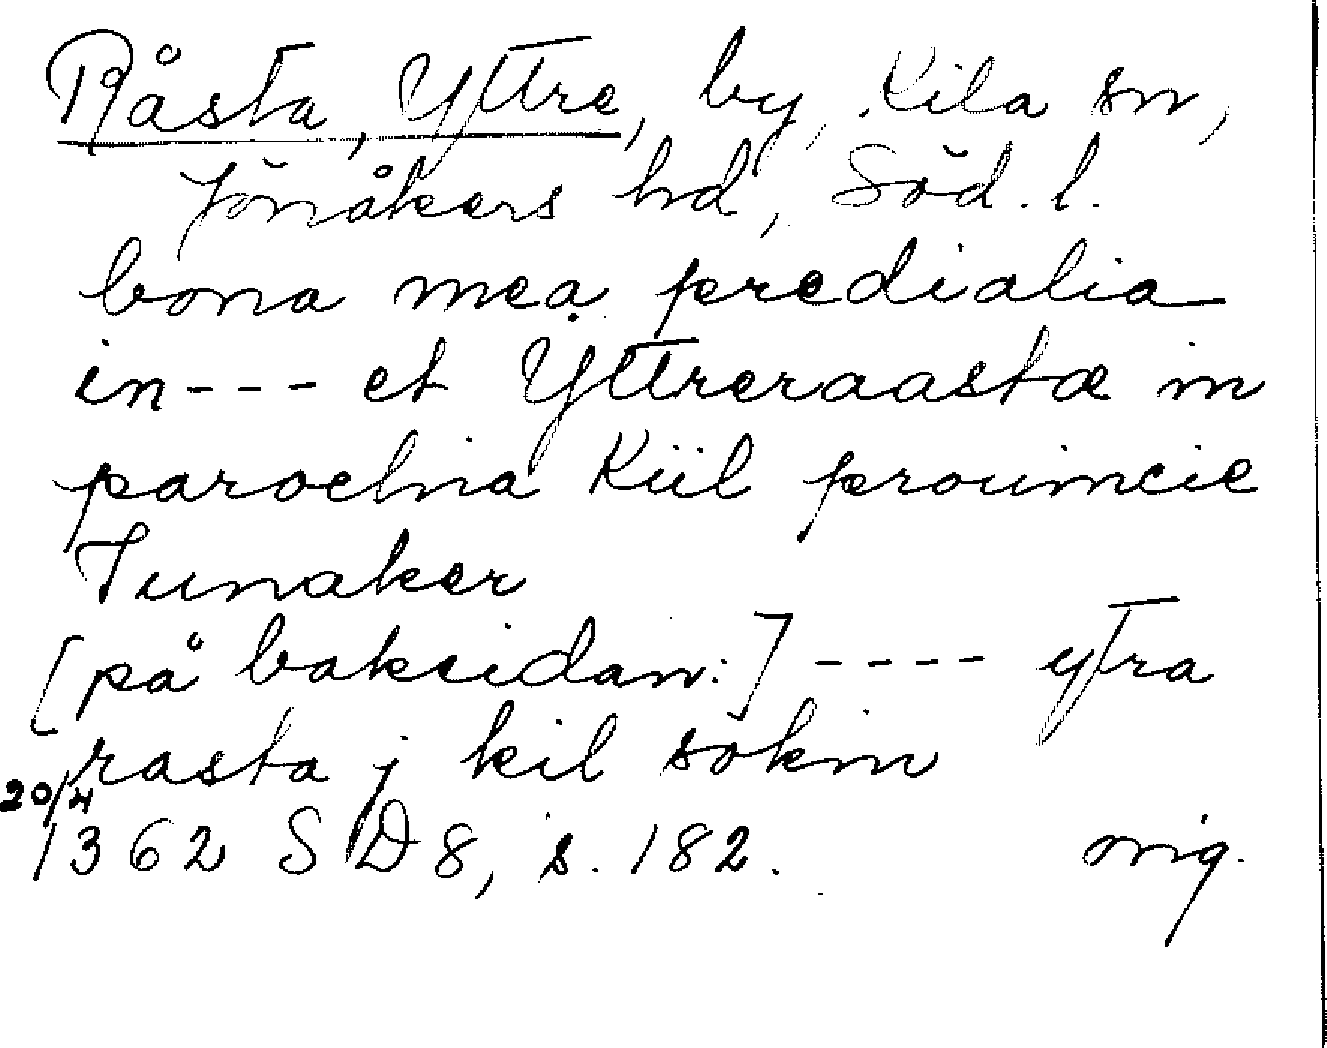 Råsta, Yttre, by, Kila sn,
Jönåkers hd, Söd. l.
bona mea predialia
in --- et Yttreraastæ in
parochia Kiil prouincie
Junaker
[på baksidan:] ---- ytra
rasta j kil sokin
20/4
1362 SD 8, s. 182. orig.